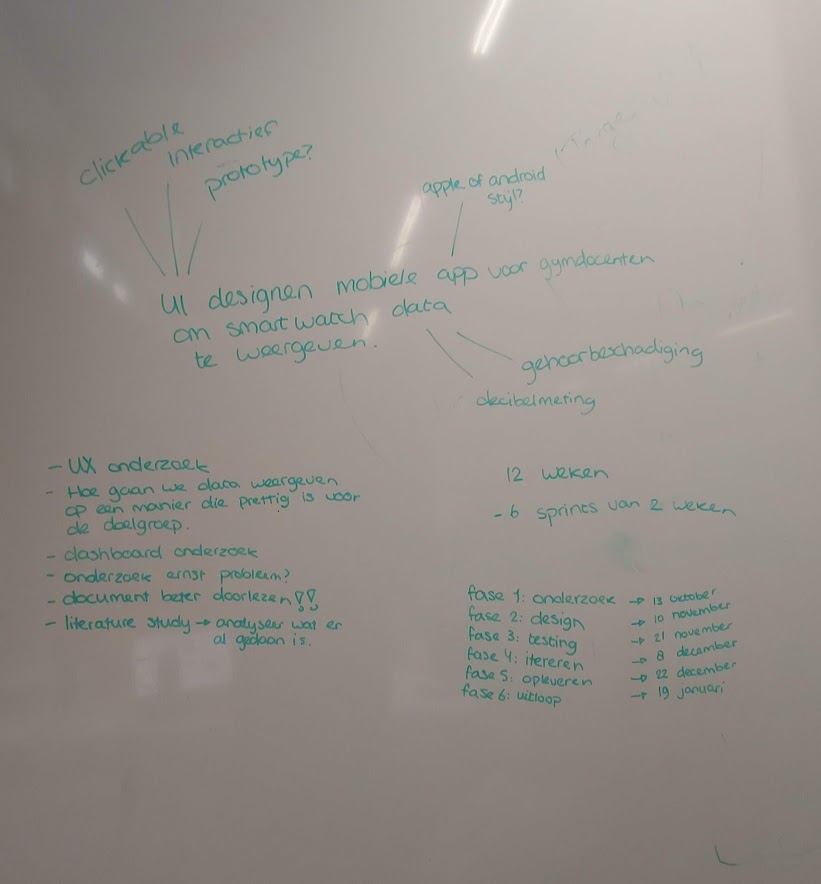 clickable
interactief
prototype?
apple of android
stijl?
UI designen mobiele app voor gymdocenten
om smartwatch data
te weergeven.
gehoorbeschadiging
decibelmeting
- UX onderzoek
- Hoe gaan we data weergeven
op een manier die prettig is voor
de doelgroep.
- dashboard onderzoek
- onderzoek ernst probleem?
- document beter doorlezen!!
- literature study → analyseer wat er
al gedaan is.
12 weken
- 6 sprints van 2 weken
fase 1: onderzoek → 13 oktober
fase 2: design → 10 november
fase 3: testing → 21 november
fase 4: itereren → 8 december
fase 5: opleveren → 22 december
fase 6: uitloop → 19 januari